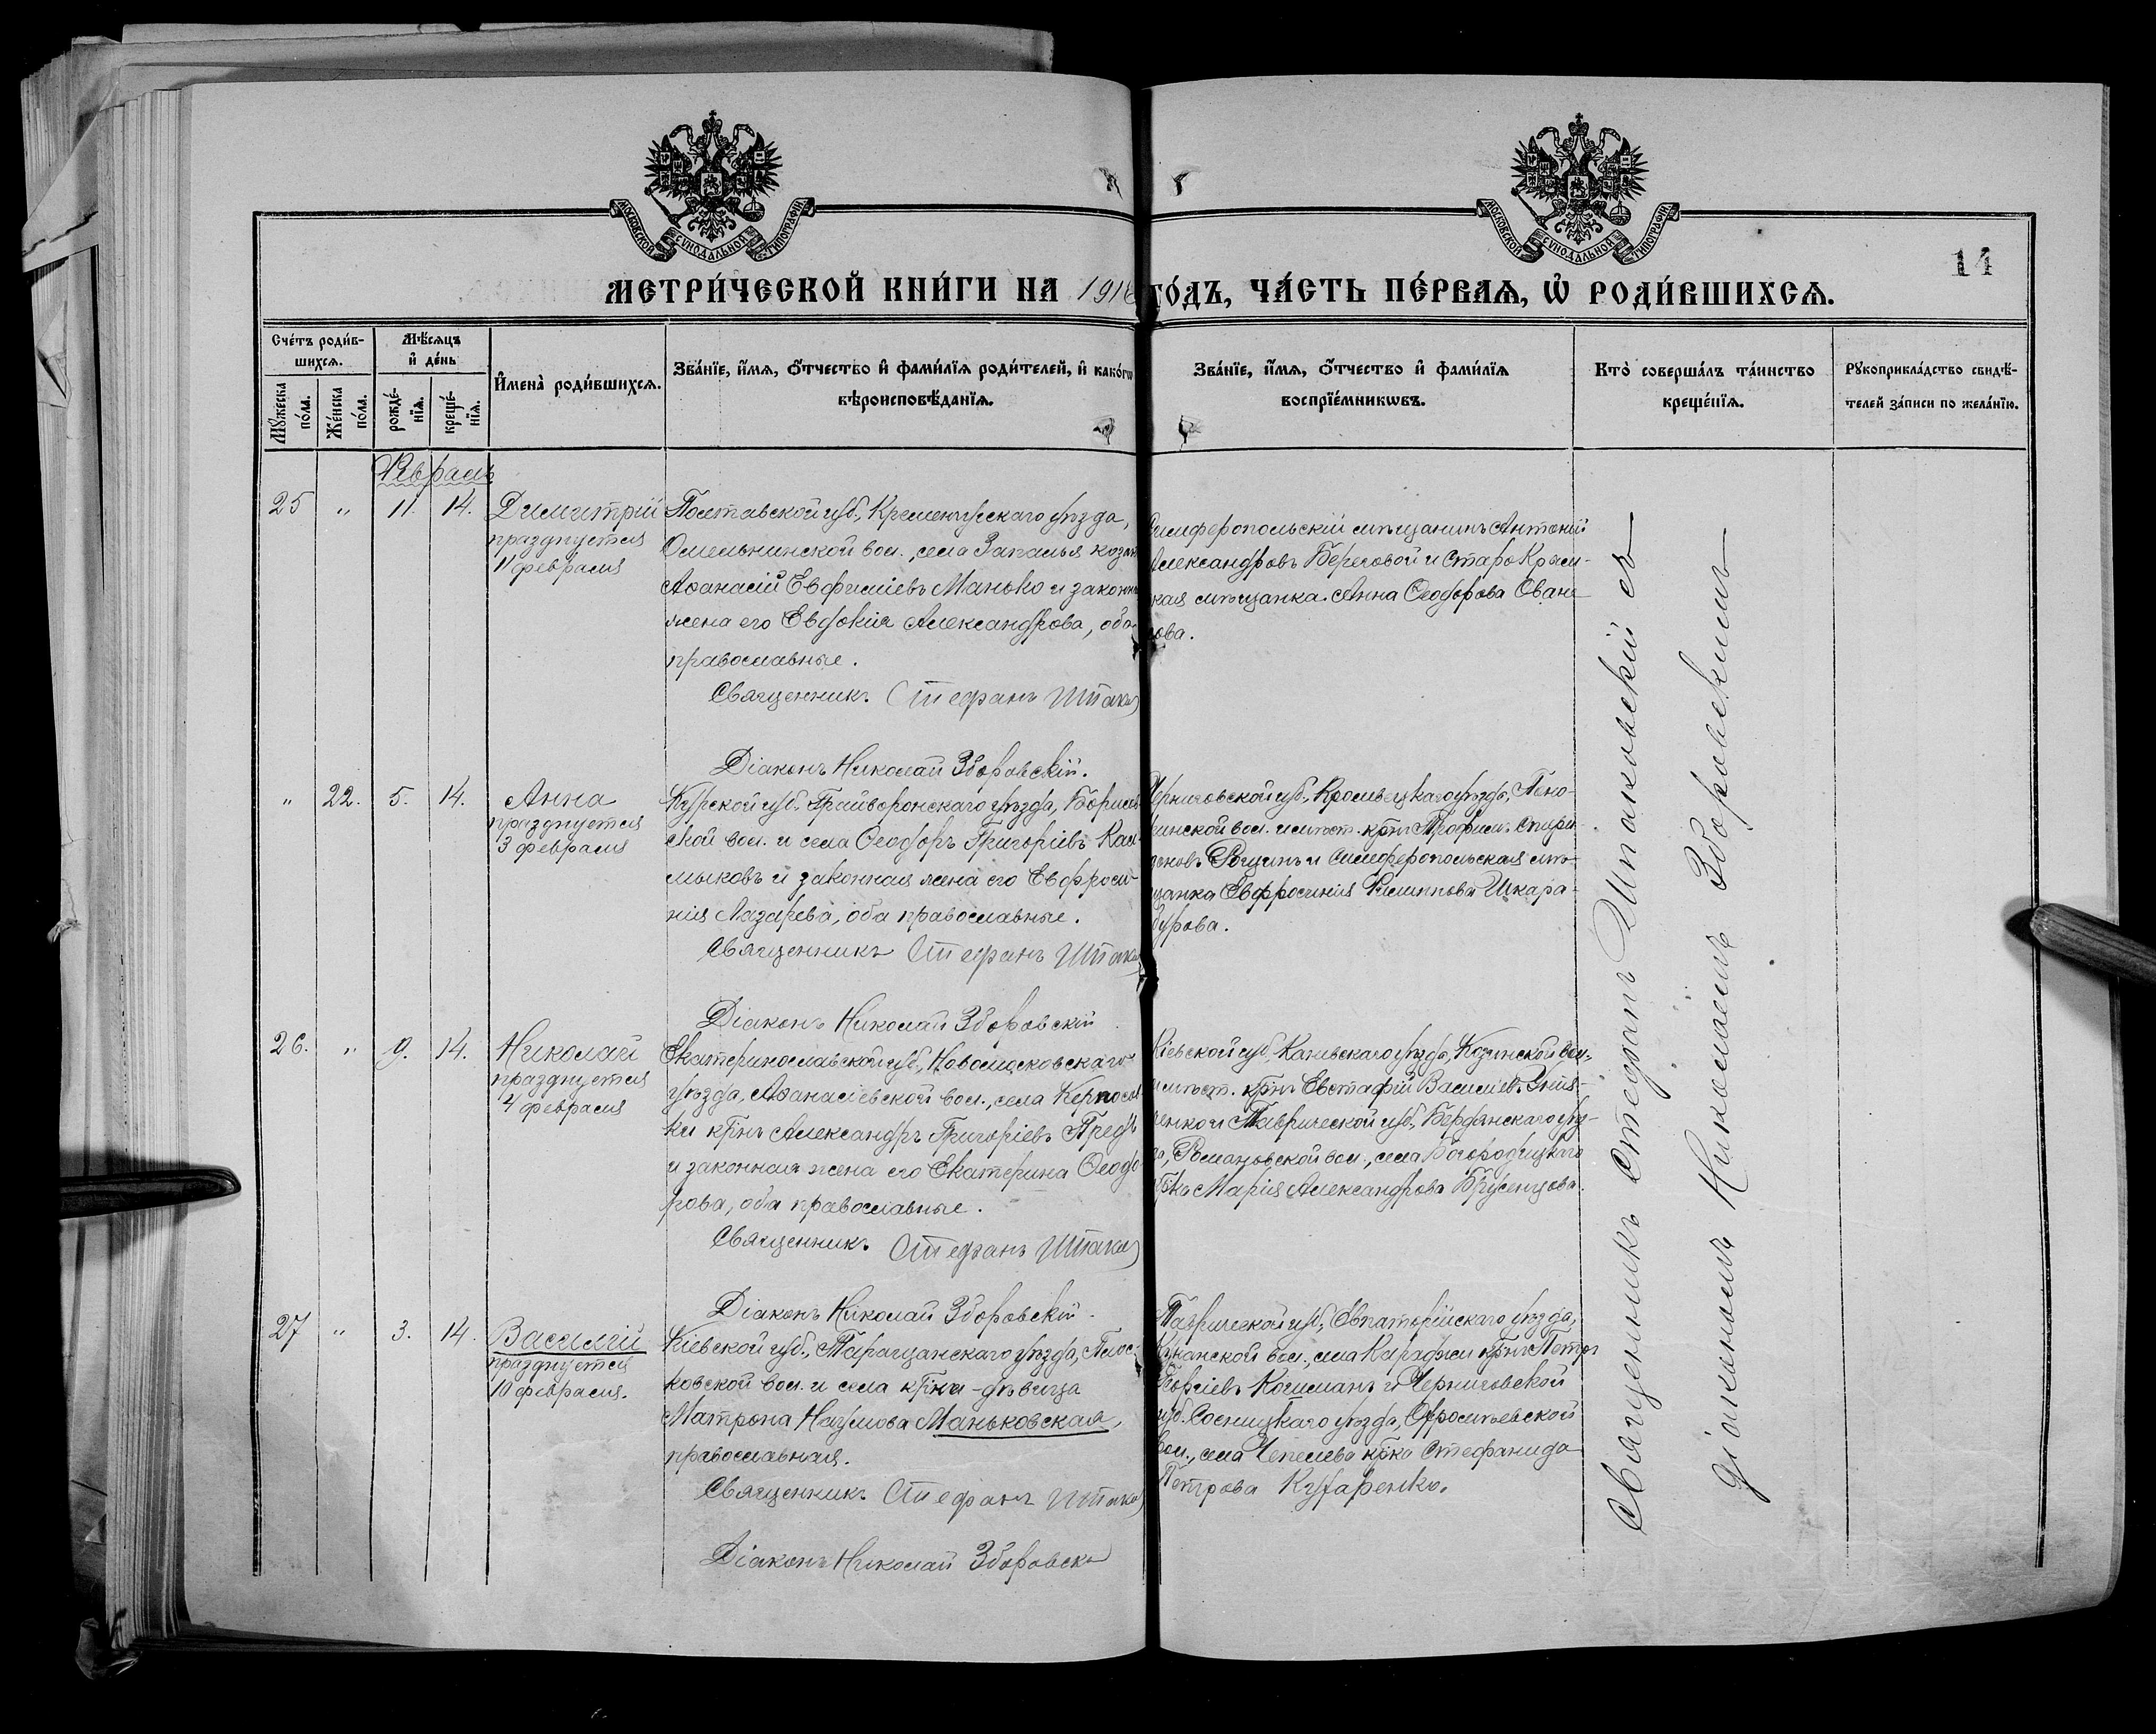 МОСКОВСКОЙ СѴНОДАЛЬНОЙ ТИПОГРАФІИ
МОСКОВСКОЙ СѴНОДАЛЬНОЙ ТИПОГРАФІИ
14
МЕТРИ́ЧЕСКОЙ КНИ́ГИ НА 191
ГО́ДЪ, ЧА́СТЬ ПЕ́РВАѦ, Ѡ РОДИ́ВШИХСѦ.
Сче́тъ роди́в-
шихсѧ.
Мꙋ́жеска по́ла.
Же́нска по́ла.
Мѣ́сяцъ
и҆ де́нь
рожде́-нїѧ.
креще́-нїѧ.
И҆мена̀ роди́вшихсѧ.
Зва́нїе, и҆́мѧ, ѻ҆́тчество и҆ фами́лїѧ роди́телей, и҆ како́гѡ
вѣроисповѣ́данїѧ.
Зва́нїе, и҆́мѧ, ѻ҆́тчество и҆ фами́лїѧ
воспрїе́мникѡвъ.
Кто̀ соверша́лъ та́инство
креще́нїѧ.
Рꙋкоприкла́дство свидѣ́-
телей за́писи по жела́нїю.
Февраль
25 " 11. 14. Димитрій
празднуется
11 февраля
Полтавской губ., Кременчугскаго уѣзда,
Омельникской вол., села Запалья козакъ
Аѳанасій Евфиміевъ Манько и законн
жена его Евдокія Александрова, оба
православные.
Священникъ Стефанъ Шпако
Діаконъ Николай Зборовскій.
Симферопольскій мѣщанинъ Антоній
Александровъ Береговой и Старо Крым-
кая мѣщанка Анна Ѳеодорова Оване
ова.
" 22. 5. 14. Анна
празднуется
3 февраля
Курской губ. Грайворонскаго уѣзда, Борисов
ской вол. и села Ѳеодоръ Григоріевъ Кал-
мыковъ и законная жена его Евфроси-
нія Лазарева, оба православные.
Священникъ Стефанъ Шпако
Діаконъ Николай Зборовскій
Черниговской губ., Кролевецкаго уѣзда,
инской вол. и мѣст. крнъ Трофимъ Спири
оновъ Рощинъ и Симферопольская мѣ-
щанка Евфросинія Филиппова Шкара-
бурова.
26. " 9. 14. Николай
празднуется
4 февраля
Екатеринославской губ., Новомосковскаго
уѣзда, Аѳанасіевской вол., села
ки крнъ Александръ Григоріевъ
и законная жена его Екатерина Ѳеодо
рова, оба православные.
Священникъ Стефанъ Шпако
Діаконъ Николай Зборовскій.
Кіевской губ., Каневскаго уѣзда, Козинской вол.
и мѣст. крнъ Евстафій Василіевъ
енко и Таврической губ., Бердянскаго уѣз-
да, Романовской вол., села Богородицкаго
крка Марія Александрова Брусенцова.
27 " 3. 14. Василій
празднуется
10 февраля.
Кіевской губ., Таращанскаго уѣзда, Плос-
ковской вол. и села крнка-дѣвица
Матрона Наумова Маньковская,
православная.
Священникъ Стефанъ Шпако
Діаконъ Николай Зборовск
Таврической губ., Евпаторійскаго уѣзда,
вол., села крнъ Петръ
Георгіевъ и Черниговской
губ. Сосницкаго уѣзда,
вол., села Чепелева крка Стефанида
Петрова
Священникъ Стефанъ Шпаковскій съ
діакономъ Николаемъ Зборовскимъ